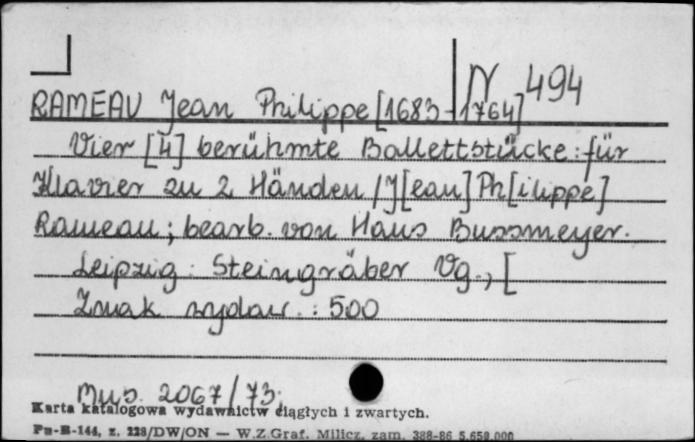 N 494
RAMEAU Jean Philippe [1683-1764]
Vier [4] berühmte Ballettstücke : für
Klavier zu 2 Händen / J[ean] Ph[ilippe]
Rameau ; bearb. von Hans Bussmeyer.
Leipzig : Steingräber Vg., [
Znak wydaw. : 500
Mus. 2067/73.
Karta katalogowa wydawnictw ciągłych i zwartych.
Pu-B-144, z. 228/DW/ON — W.Z.Graf. Milicz, zam. 388-86 5.650.000